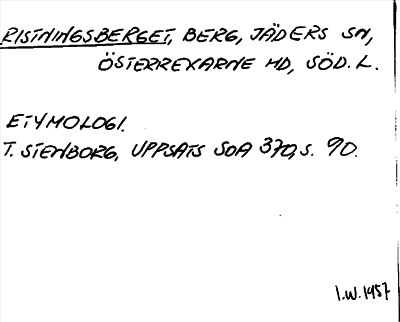 RISTNINGSBERGET, BERG, JÄDERS SN,
ÖSTERREKARNE HD, SÖD. L.
ETYMOLOGI.
T. STENBORG, UPPSATS SOA 370, S. 90.
I.W. 1957